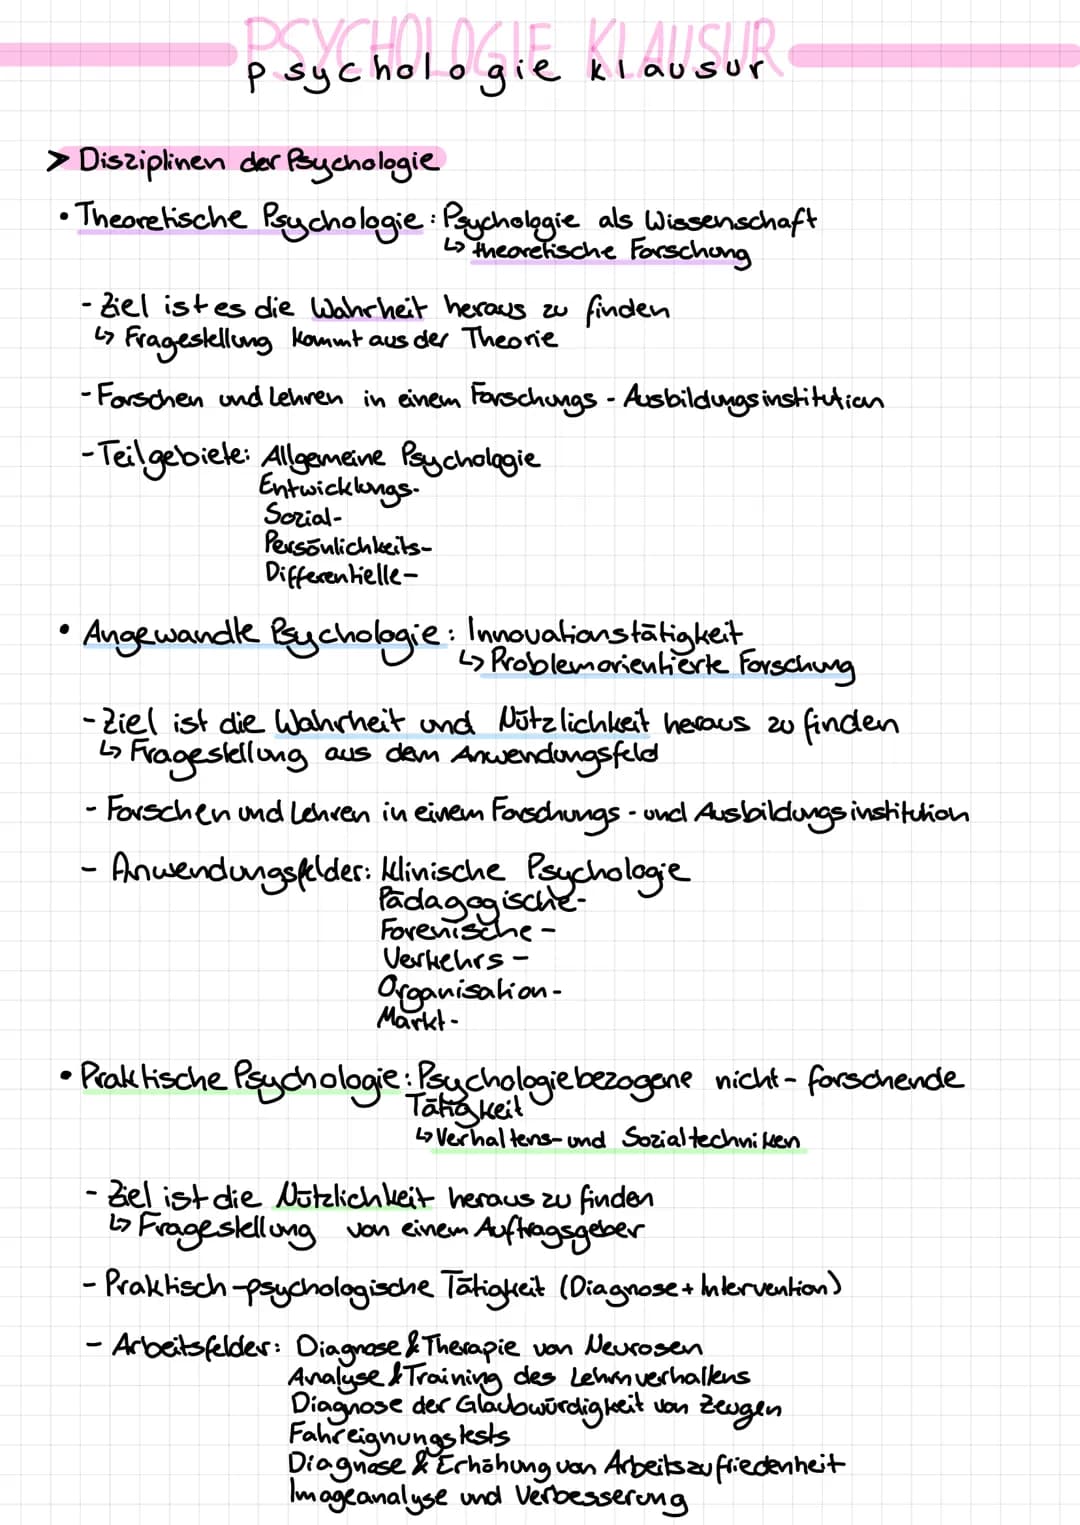 PSYCHOLOGIE KLAUSUR
psychologie klausur
> Disziplinen der Psychologie
• Theoretische Psychologie: Psychologie als Wissenschaft
↳ theoretische Forschung
- Ziel ist es die Wahrheit heraus zu finden
↳ Fragestellung kommt aus der Theorie
- Forschen und Lehren in einem Forschungs - Ausbildungsinstitution
- Teilgebiete: Allgemeine Psychologie
Entwicklungs-
Sozial-
Persönlichkeits-
Differentielle-
• Angewandte Psychologie: Innovationstätigkeit
↳ Problemorientierte Forschung
- Ziel ist die Wahrheit und Nützlichkeit heraus zu finden
↳ Fragestellung aus dem Anwendungsfeld
- Forschen und Lehren in einem Forschungs - und Ausbildungsinstitution
- Anwendungsfelder: klinische Psychologie
Pädagogische-
Forenische -
Verkehrs -
Organisation -
Markt -
• Praktische Psychologie: Psychologiebezogene nicht - forschende
Tätigkeit
↳ Verhaltens- und Sozialtechniken
- Ziel ist die Nützlichkeit heraus zu finden
↳ Fragestellung von einem Auftragsgeber
- Praktisch-psychologische Tätigkeit (Diagnose + Intervention)
- Arbeitsfelder: Diagnose & Therapie von Neurosen
Analyse & Training des Lehrnverhaltens
Diagnose der Glaubwürdigkeit von Zeugen
Fahreignungstests
Diagnose & Erhöhung von Arbeitszufriedenheit
Imageanalyse und Verbesserung